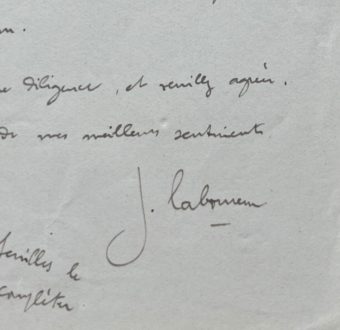 diligence, et veuillez agréer.
de mes meilleurs sentiments
J.
feuilles le
compléter